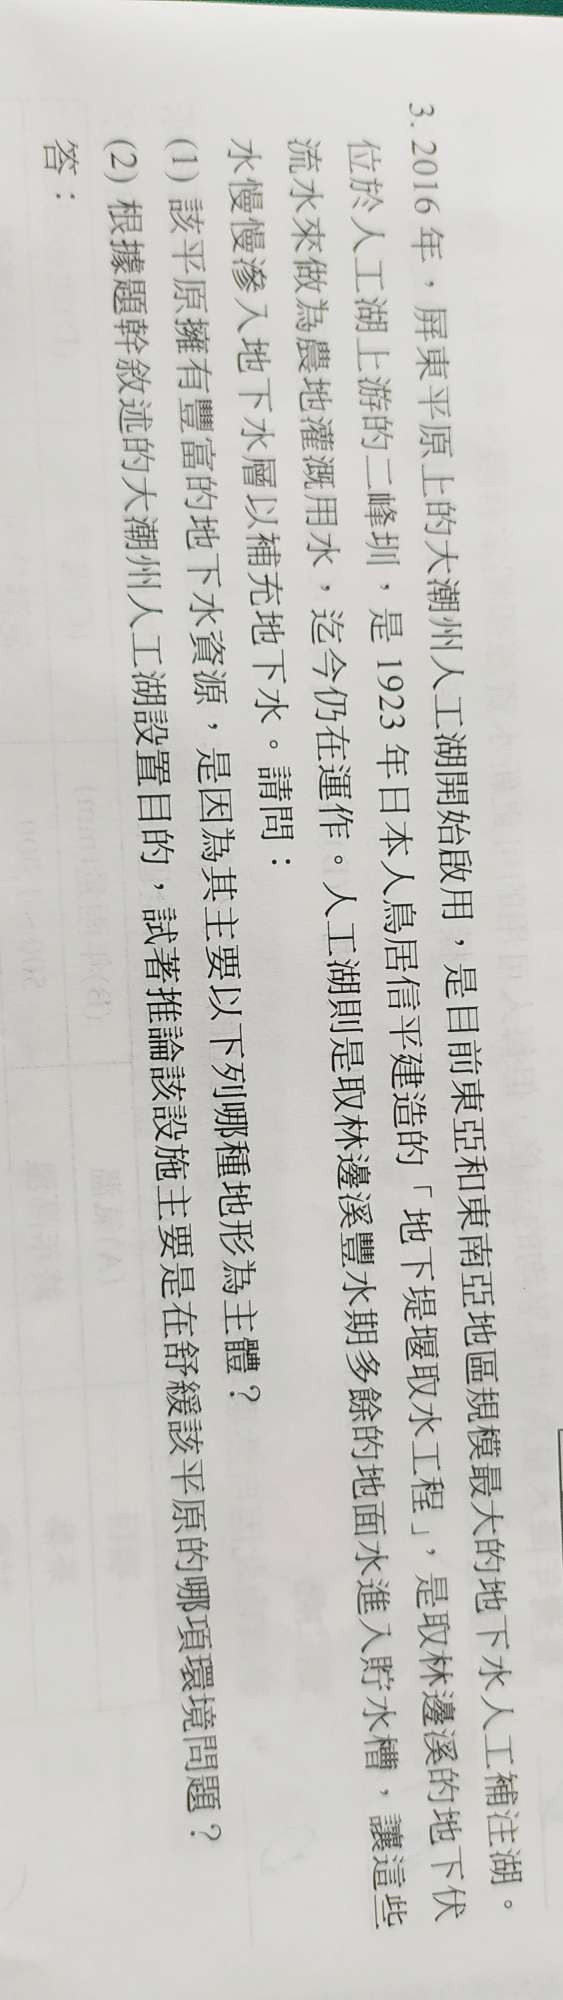 3. 2016 年，屏東平原上的大潮州人工湖開始啟用，是目前東亞和東南亞地區規模最大的地下水人工補注湖。
位於人工湖上游的二峰圳，是 1923 年日本人鳥居信平建造的「地下堤堰取水工程」，是取林邊溪的地下伏
流水來做為農地灌溉用水，迄今仍在運作。人工湖則是取林邊溪豐水期多餘的地面水進入貯水槽，讓這些
水慢慢滲入地下水層以補充地下水。請問：
(1) 該平原擁有豐富的地下水資源，是因為其主要以下列哪種地形為主體？
(2) 根據題幹敘述的大潮州人工湖設置目的，試著推論該設施主要是在舒緩該平原的哪項環境問題？
答：